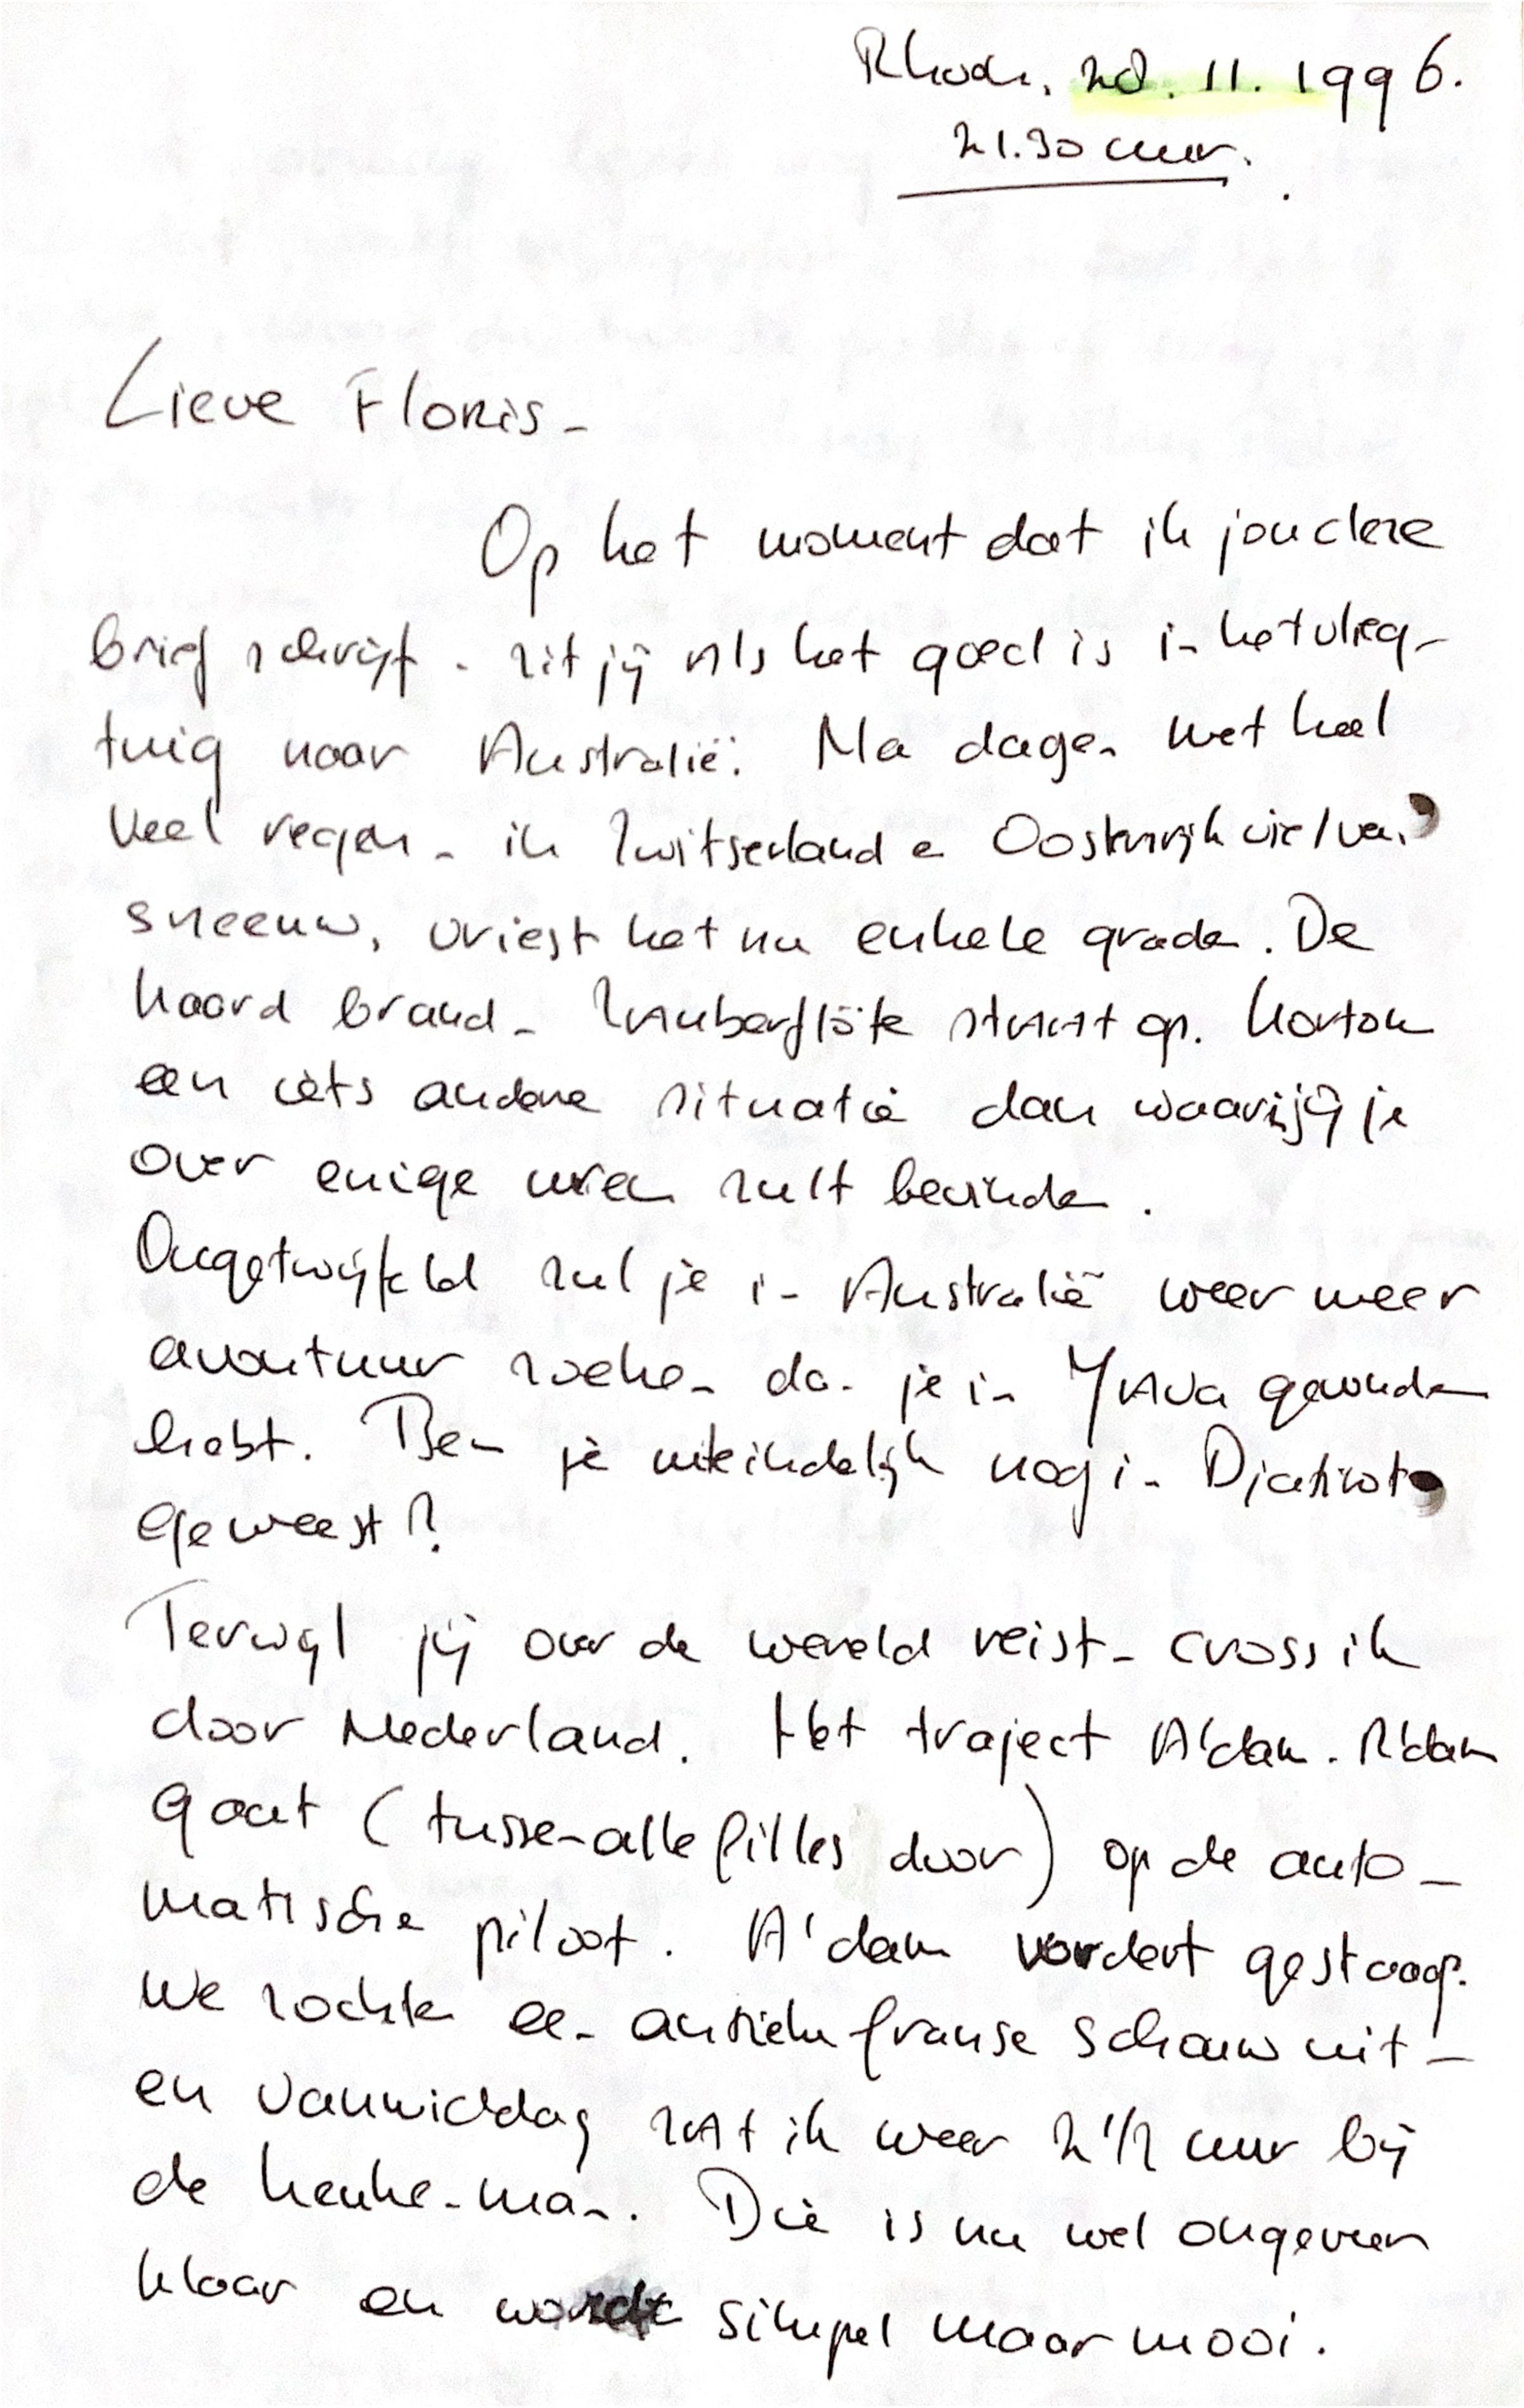 Rhoon, 28.11.1996.
21.30 uur.
Lieve Floris -
Op het moment dat ik jou deze
brief schrijf - zit jij als het goed is in het vlieg-
tuig naar Australië. Na dagen met heel
veel regen - in Zwitserland en Oostenrijk viel veel
sneeuw, vriest het nu enkele graden. De
haard brand - Zauberflöte staat op. Kortom
een iets andere situatie dan waarin jij je
over enige uren zult bevinden.
Ongetwijfeld zul je in Australië weer meer
avontuur zoeken dan je in Java gevonden
hebt. Ben je uiteindelijk nog in Djatiroto
geweest?
Terwijl jij over de wereld reist - cross ik
door Nederland. Het traject A'dam - R'dam
gaat (tussen alle files door) op de auto-
matische piloot. A'dam vordert gestaag.
We zochten een antieke franse schouw uit -
en vanmiddag zat ik weer 2 1/2 uur bij
de keukenman. Die is nu wel ongeveer
klaar en wordt simpel maar mooi.